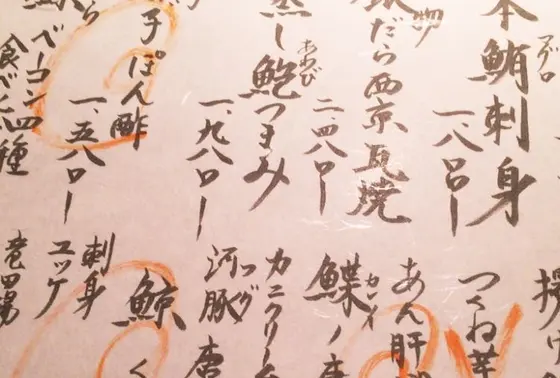 本鮪刺身
マグロ
一、八〇〇ー
物
だら西京瓦焼
二、四八〇ー
蒸し鮑つまみ
あわび
一、九八〇ー
子ぽん酢
一、五八〇ー
ベーコン四種
揚げ
つくね芋
あん肝
カレイ
鰈ノ唐
カニクリーム
フグ
河豚 唐
鯨
刺身
ユッケ
竜田揚